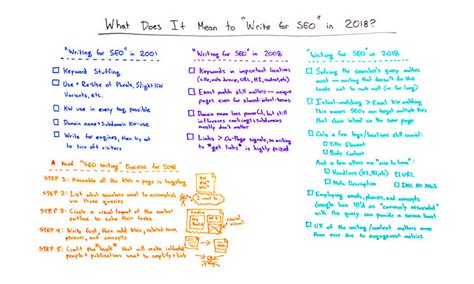 What Does It Mean to "Write for SEO" in 2018?
"Writing for SEO" in 2001
Keyword Stuffing
Use + Re-Use of Plurals, Slight KW
Variants, etc.
KW use in every tag possible
Domain name + Subdomain KW-use
Write for engines, then try not
to turn off visitors
"Writing for SEO" in 2008
Keywords in important locations
(title, domain name, URL, H1, meta desc, etc)
Exact match still matters -- unique
pages even for shared-intent terms
Sub domains, partial + exact match still
influences rankings; subdomains
mostly don't
Links > On-Page signals, so writing
to "get links" is highly prized
"Writing for SEO" in 2018
Solving the searcher's query matters
most -- writing that doesn't do this
tends not to rank well (or for long)
Intent-matching > Exact KW matching
This means SEOs can target multiple KWs that
share intent on the same page
Only a few tags/locations still crucial:
Title Element
Body Content
And a few others are "nice to have":
Headlines (H1, H2, etc)
URL
Meta Description
IMG Alt Attr
Employing words, phrases, and concepts
Google has ID'd as "commonly associated"
with the query can provide a serious boost
UX of the writing/content matters more
than ever due to engagement metrics
A Brief "SEO Writing" Process for 2018
STEP 1: Assemble all the KWs a page is targeting
STEP 2: List what searchers want to accomplish
are these queries
STEP 3: Create a visual layout of the content
outline to solve their tasks
STEP 4: Write first, then add KWs, related terms,
phrases, and concepts
STEP 5: Craft the "hook" that will make influential
people + publications want to amplify + link